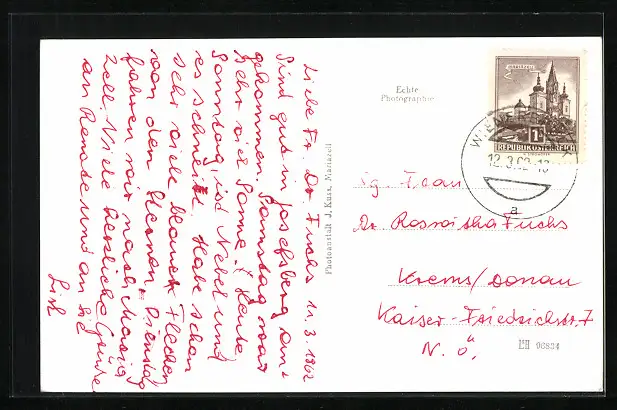 Liebe Fr. Dr. Fuchs 11.3.1962
Sind gut in Josefsberg an=
gekommen. Samstag war
sehr viel Sonne. Heute
Sonntag, ist Nebel und
es schneit. Habe schon
sehr viele blaue Flecken
von den Dienstag
fahren wir nach Maria
Zell. Viele herzliche Grüsse
an Renate und an Sie
Photoanstalt J. Kuss, Mariazell
Echte
Photographie
MARIAZELL
1S
REPUBLIK ÖSTERREICH
12.3.
a
Frau
Dr Roswitha Fuchs
Krems/Donau
Kaiser-Friedrichstr. 7
N. Ö.